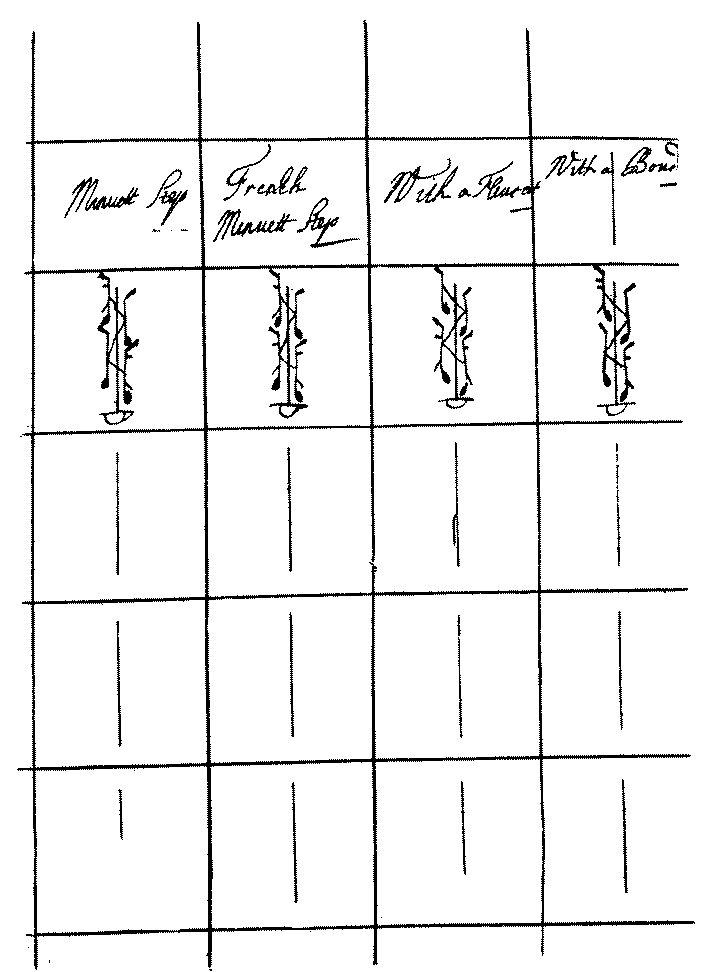 Minuett Step
French
Minuett Step
With a Fleuret
With a Bound